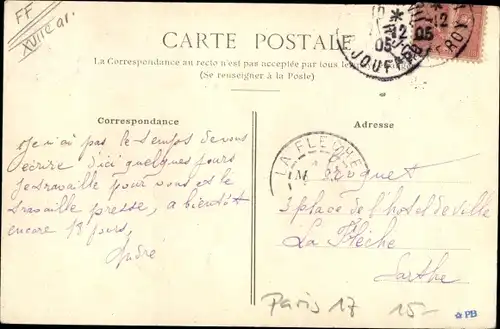 FF
XVIIe a1.
CARTE POSTALE
La Correspondance au recto n'est pas acceptée par tous les
(Se renseigner à la Poste)
12
05
12
05
JOUFFROY
Correspondance
Adresse
LA FLECHE
Je n'ai pas le temps de vous
écrire d'ici quelques jours
Je travaille pour vous et le
travaille presse, a bientôt
encore 18 jours,
André
3 place de l'hotel de ville
La Flèche
Sarthe
Paris 17
15-
PB